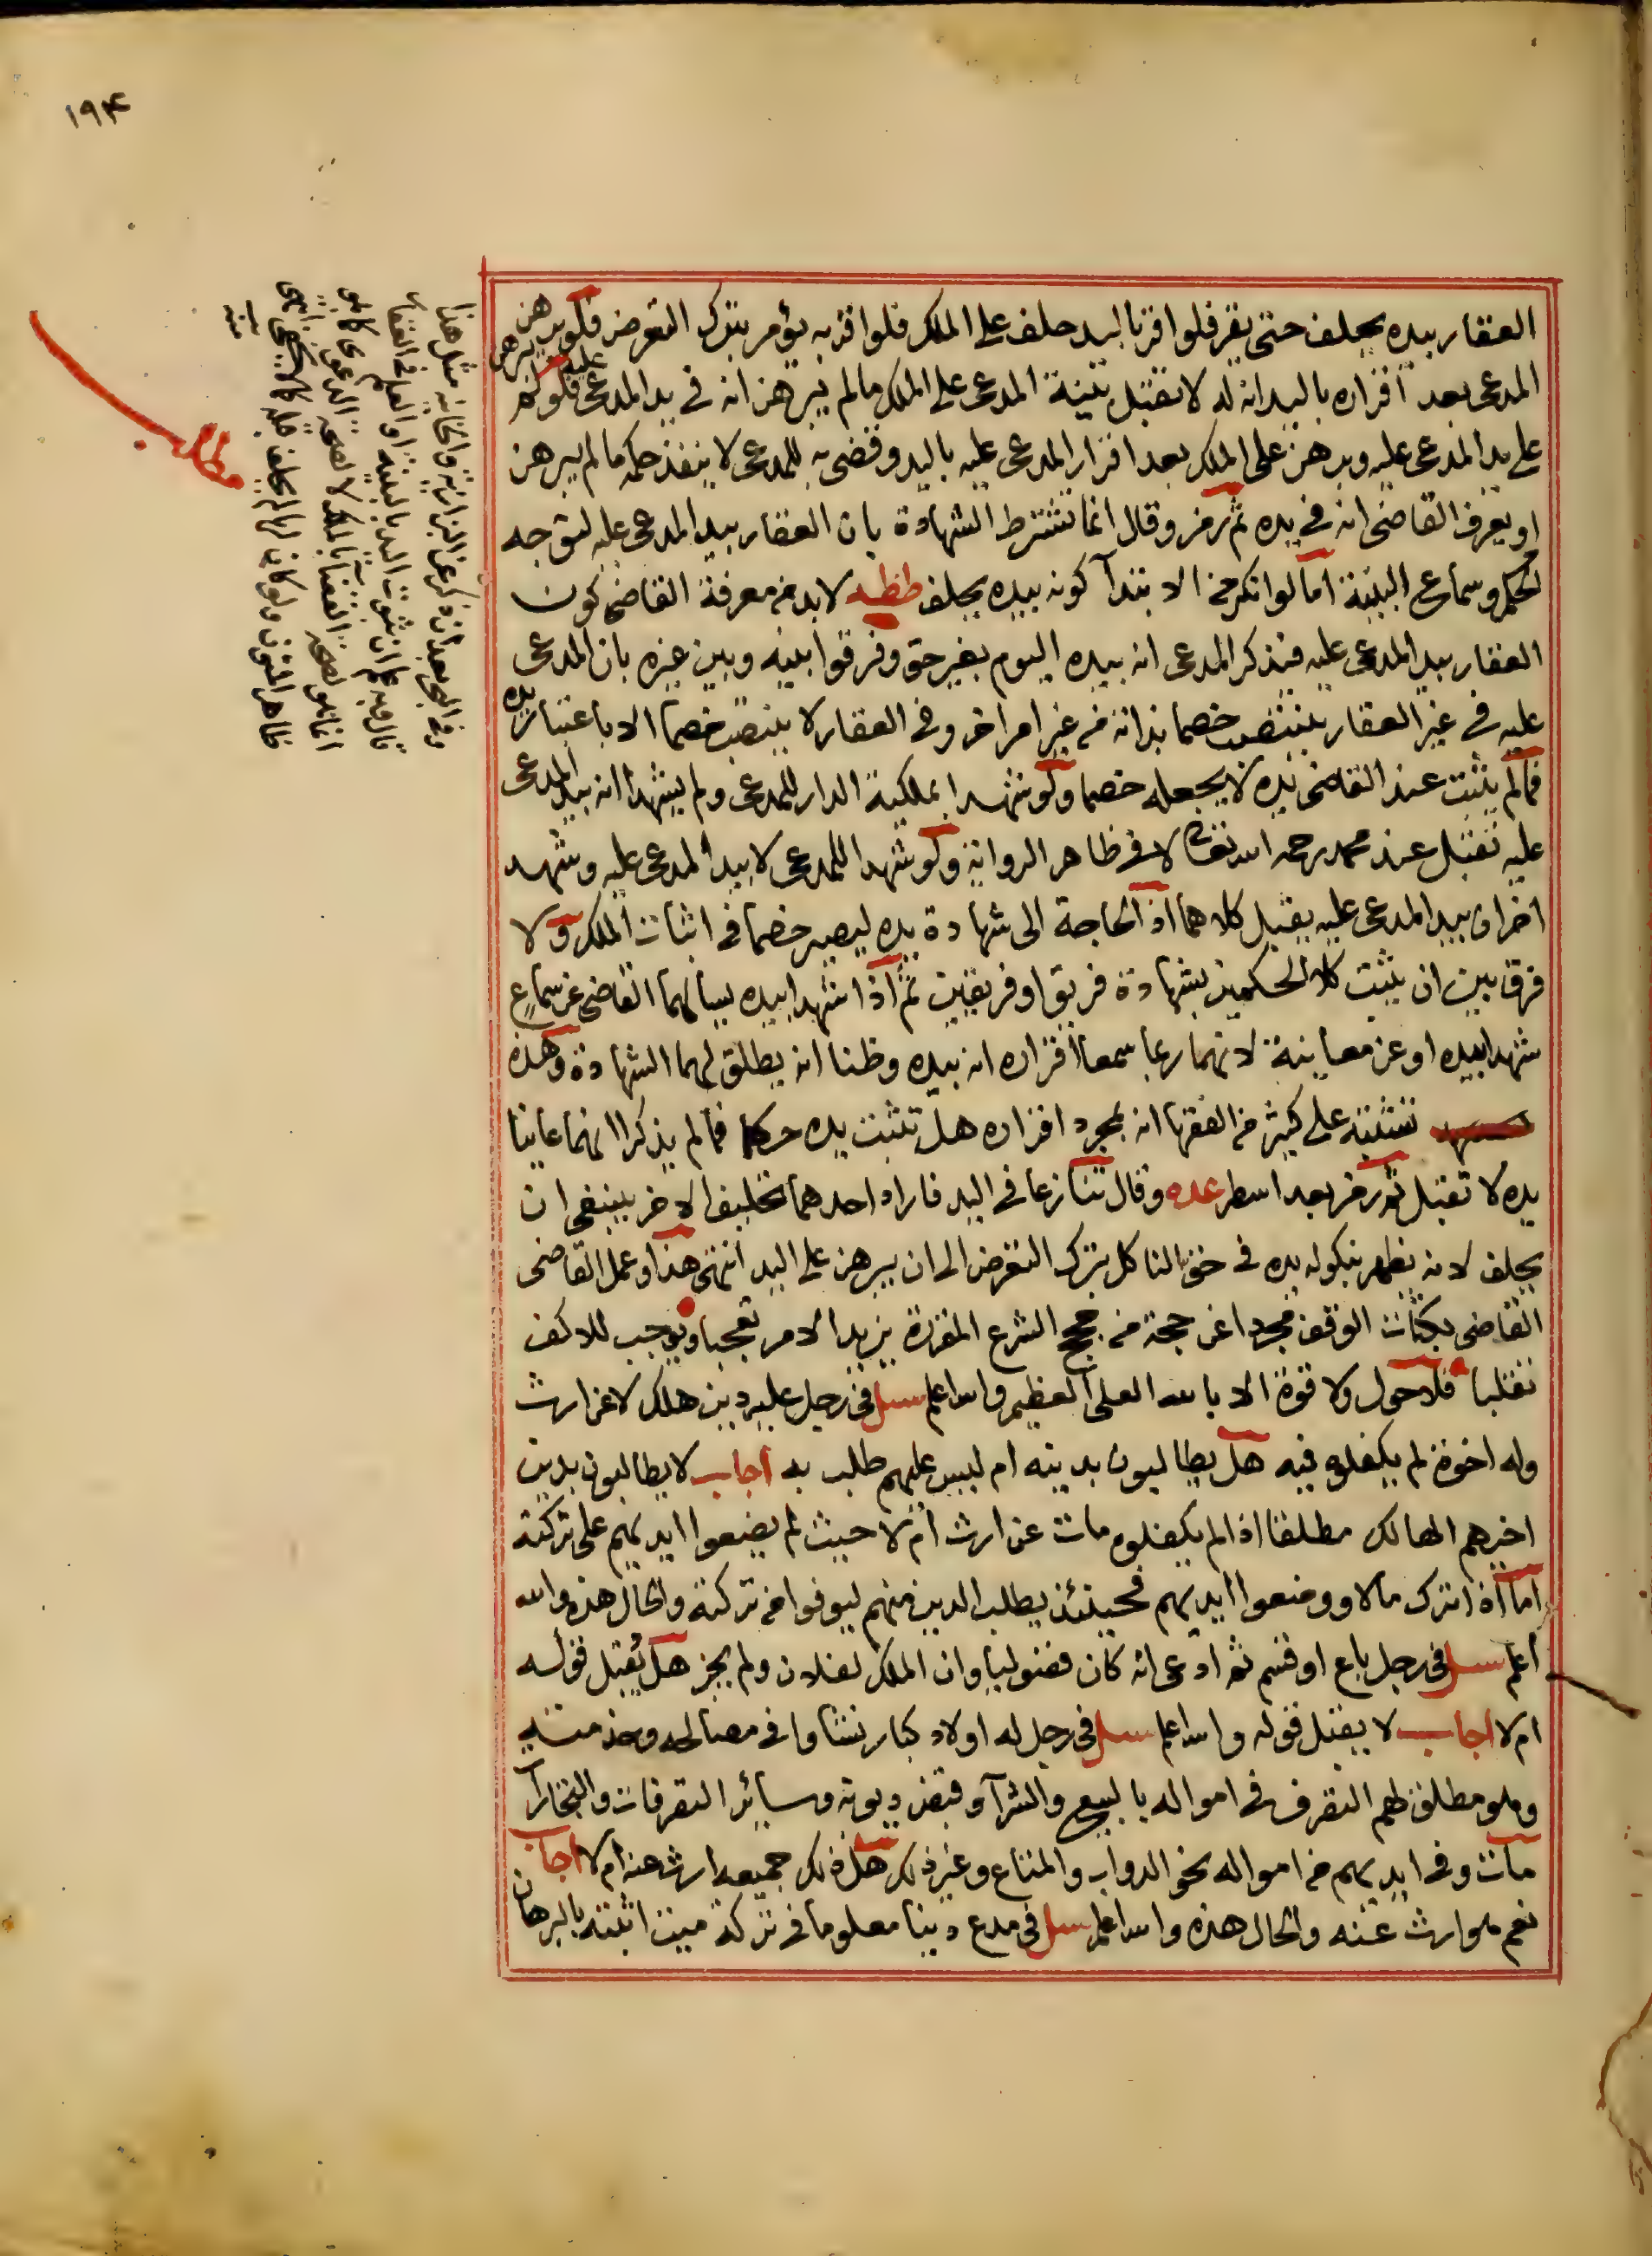 ١٩۴
العقار بيده يحلف حتى يقر فلو اقر باليد حلف على الملك فلو اقر به يؤمر بترك التعرض فلو برهن
المدعى بعد اقراره باليد انه له لا تقبل بينة المدعى على الملك ما لم يبرهن انه في يد المدعى عليه فلو لم يبرهن
على يد المدعى عليه وبرهن على الملك بعد اقرار المدعى عليه باليد وقضى به للمدعى لا ينفذ حكمه ما لم يبرهن
او يعرف القاضى انه في يده ثم رمز وقال انما تشترط الشهادة بان العقار بيد المدعى عليه لتوجه
الحكم وسماع البينة اما لو انكر من الابتدآ كونه بيده يحلف ظظه لابد من معرفة القاضى كون
العقار بيد المدعى عليه فيذكر المدعى انه بيده اليوم بغير حق وفرقوا بينه وبين غيره بان المدعى
عليه في غير العقار ينتصب خصما بذاته من غير امر اخر وفى العقار لا ينتصب خصما الا باعتبار يده
فما لم يثبت عند القاضى يده لا يجعله خصما ولو شهدا بملكية الدار للمدعى ولم يشهدا انه بيد المدعى
عليه تقبل عند محمد رحمه الله تعالى لا في ظاهر الرواية ولو شهدا للمدعى لا بيد المدعى عليه وشهد
اخران بيد المدعى عليه يقبل كلاهما اذ الحاجة الى شهادة يده ليصير خصما في اثبات الملك ولا
فرق بين ان يثبت كلا الحكمين بشهادة فريق او فريقين ثم اذا شهدا بيده يسالهما القاضى عن سماع
شهدا بيده او عن معاينة لانهما ربما سمعا اقراره انه بيده وظنا انه يطلق لهما الشهادة وهذه
تشتبه على كثير من الفقها انه بمجرد اقراره هل تثبت يده حكما فما لم يذكرا انهما عاينا
يده لا تقبل ثم رمز بعد اسطر عده وقال تنازعا في اليد فاراد احدهما تحليف الاخر ينبغى ان
يحلف لانه يظهر بنكوله يده في حق الناكل بترك التعرض الى ان يبرهن على اليد انتهى هذا وعمل القاضى
القاضى بكتاب الوقف مجردا عن حجة من حجج الشرع المقررة يزيد الامر تعجبا ويوجب للاكف
تقلبا فلا حول ولا قوة الا بالله العلى العظيم والله اعلم سئل فى رجل عليه دين هلك لا عن ارث
وله اخوة لم يكفلوه فيه هل يطالبون بدينه ام ليس عليهم طلب به اجاب لا يطالبون بدين
اخيهم الهالك مطلقا اذا لم يكفلوه مات عن ارث ام لا حيث لم يضعوا ايديهم على تركته
اما اذا ترك مالا ووضعوا ايديهم فحينئذ يطلب الدين منهم ليوفوا من تركته والحال هذه والله
اعلم سئل فى رجل باع او قسم ثم ادعى انه كان فضوليا وان الملك لفلان ولم يجز هل يقبل قوله
ام لا اجاب لا يقبل قوله والله اعلم سئل فى رجل له اولاد كبار نشاوا في مصالحه وخدمته
وهو مطلق لهم التصرف في امواله بالبيع والشرآ وقبض ديونه وسائر التصرفات والتجارات
مات وفى ايديهم من امواله نحو الدواب والمتاع وغير ذلك هل ذلك جميعه ارث عنه ام لا اجاب
نعم هو ارث عنه والحال هذه والله اعلم سئل فى مدع دينا معلوما في تركة ميت اثبته بالبرهان
مطلب
مثل هذا